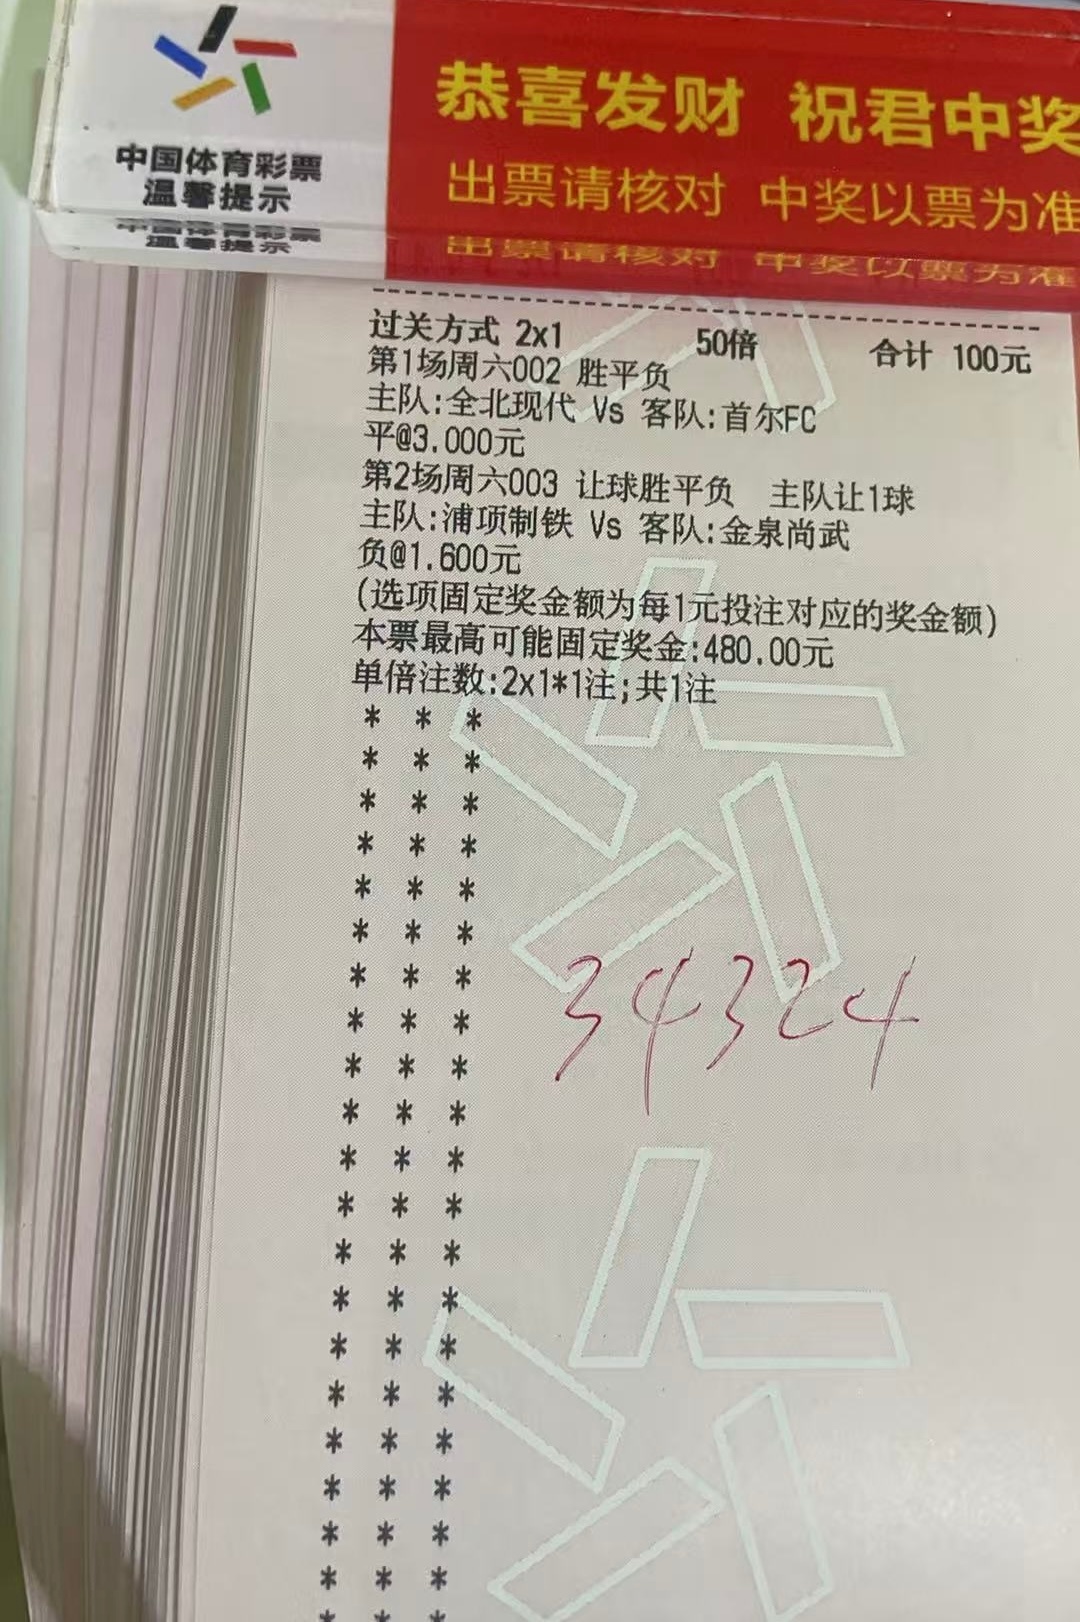 中国体育彩票
温馨提示
恭喜发财 祝君中奖
出票请核对 中奖以票为准
过关方式 2x1 50倍 合计 100元
第1场周六002 胜平负
主队:全北现代 Vs 客队:首尔FC
平@3.000元
第2场周六003 让球胜平负 主队让1球
主队:浦项制铁 Vs 客队:金泉尚武
负@1.600元
(选项固定奖金额为每1元投注对应的奖金额)
本票最高可能固定奖金:480.00元
单倍注数:2x1*1注;共1注
* * *
* * *
* * *
* * *
* * *
* * *
* * *
* * *
* * *
* * *
* * *
* * *
* * *
* * *
* * *
* * *
* * *
* * *
* * *
* * *
* * *
34324